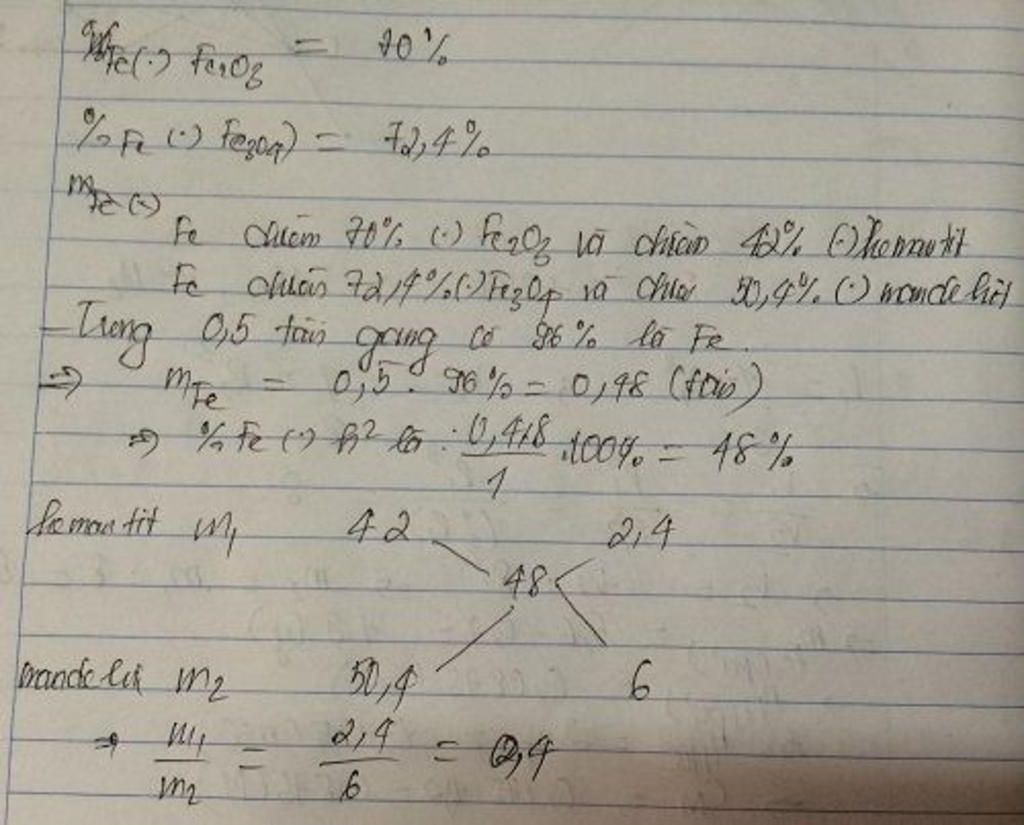 %Fe(·) Fe2O3 = 70%
% Fe (·) Fe3O4) = 72,4%
mFe (·)
Fe chiếm 70% (·) Fe2O3 và chiếm 42% (·) hematit
Fe chiếm 72,4% (·) Fe3O4 và chiếm 50,4% (·) manđehit
- Trong 0,5 tấn gang có 96% là Fe.
=> mFe = 0,5 . 96% = 0,48 (tấn)
=> % Fe (·) h² là : 0,48/1 .100% = 48%
hematit m1 42 2,4
48
manđehit m2 50,4 6
→ m1/m2 = 2,4/6 = 0,4